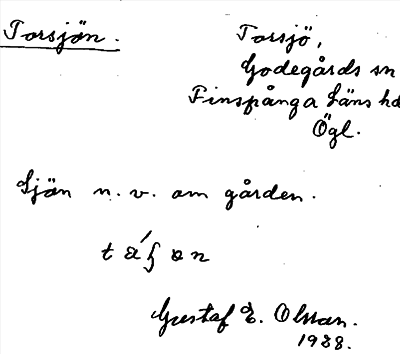 Torsjön.
Torsjö,
Godegårds sn
Finspånga Läns hd
Ögl.
Sjön n. v. om gården.
Gustaf E. Olsson.
1938.